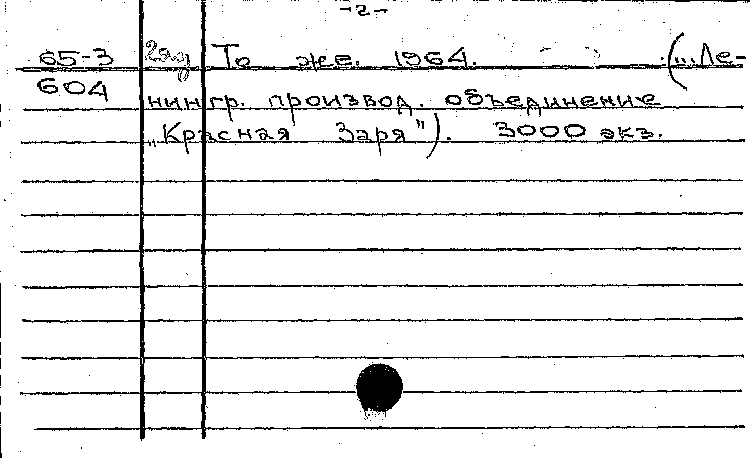 -2-
65-3 2яд То же. 1964. („Ле-
604
нингр. производ. объединение
„Красная Заря"). 3000 экз.